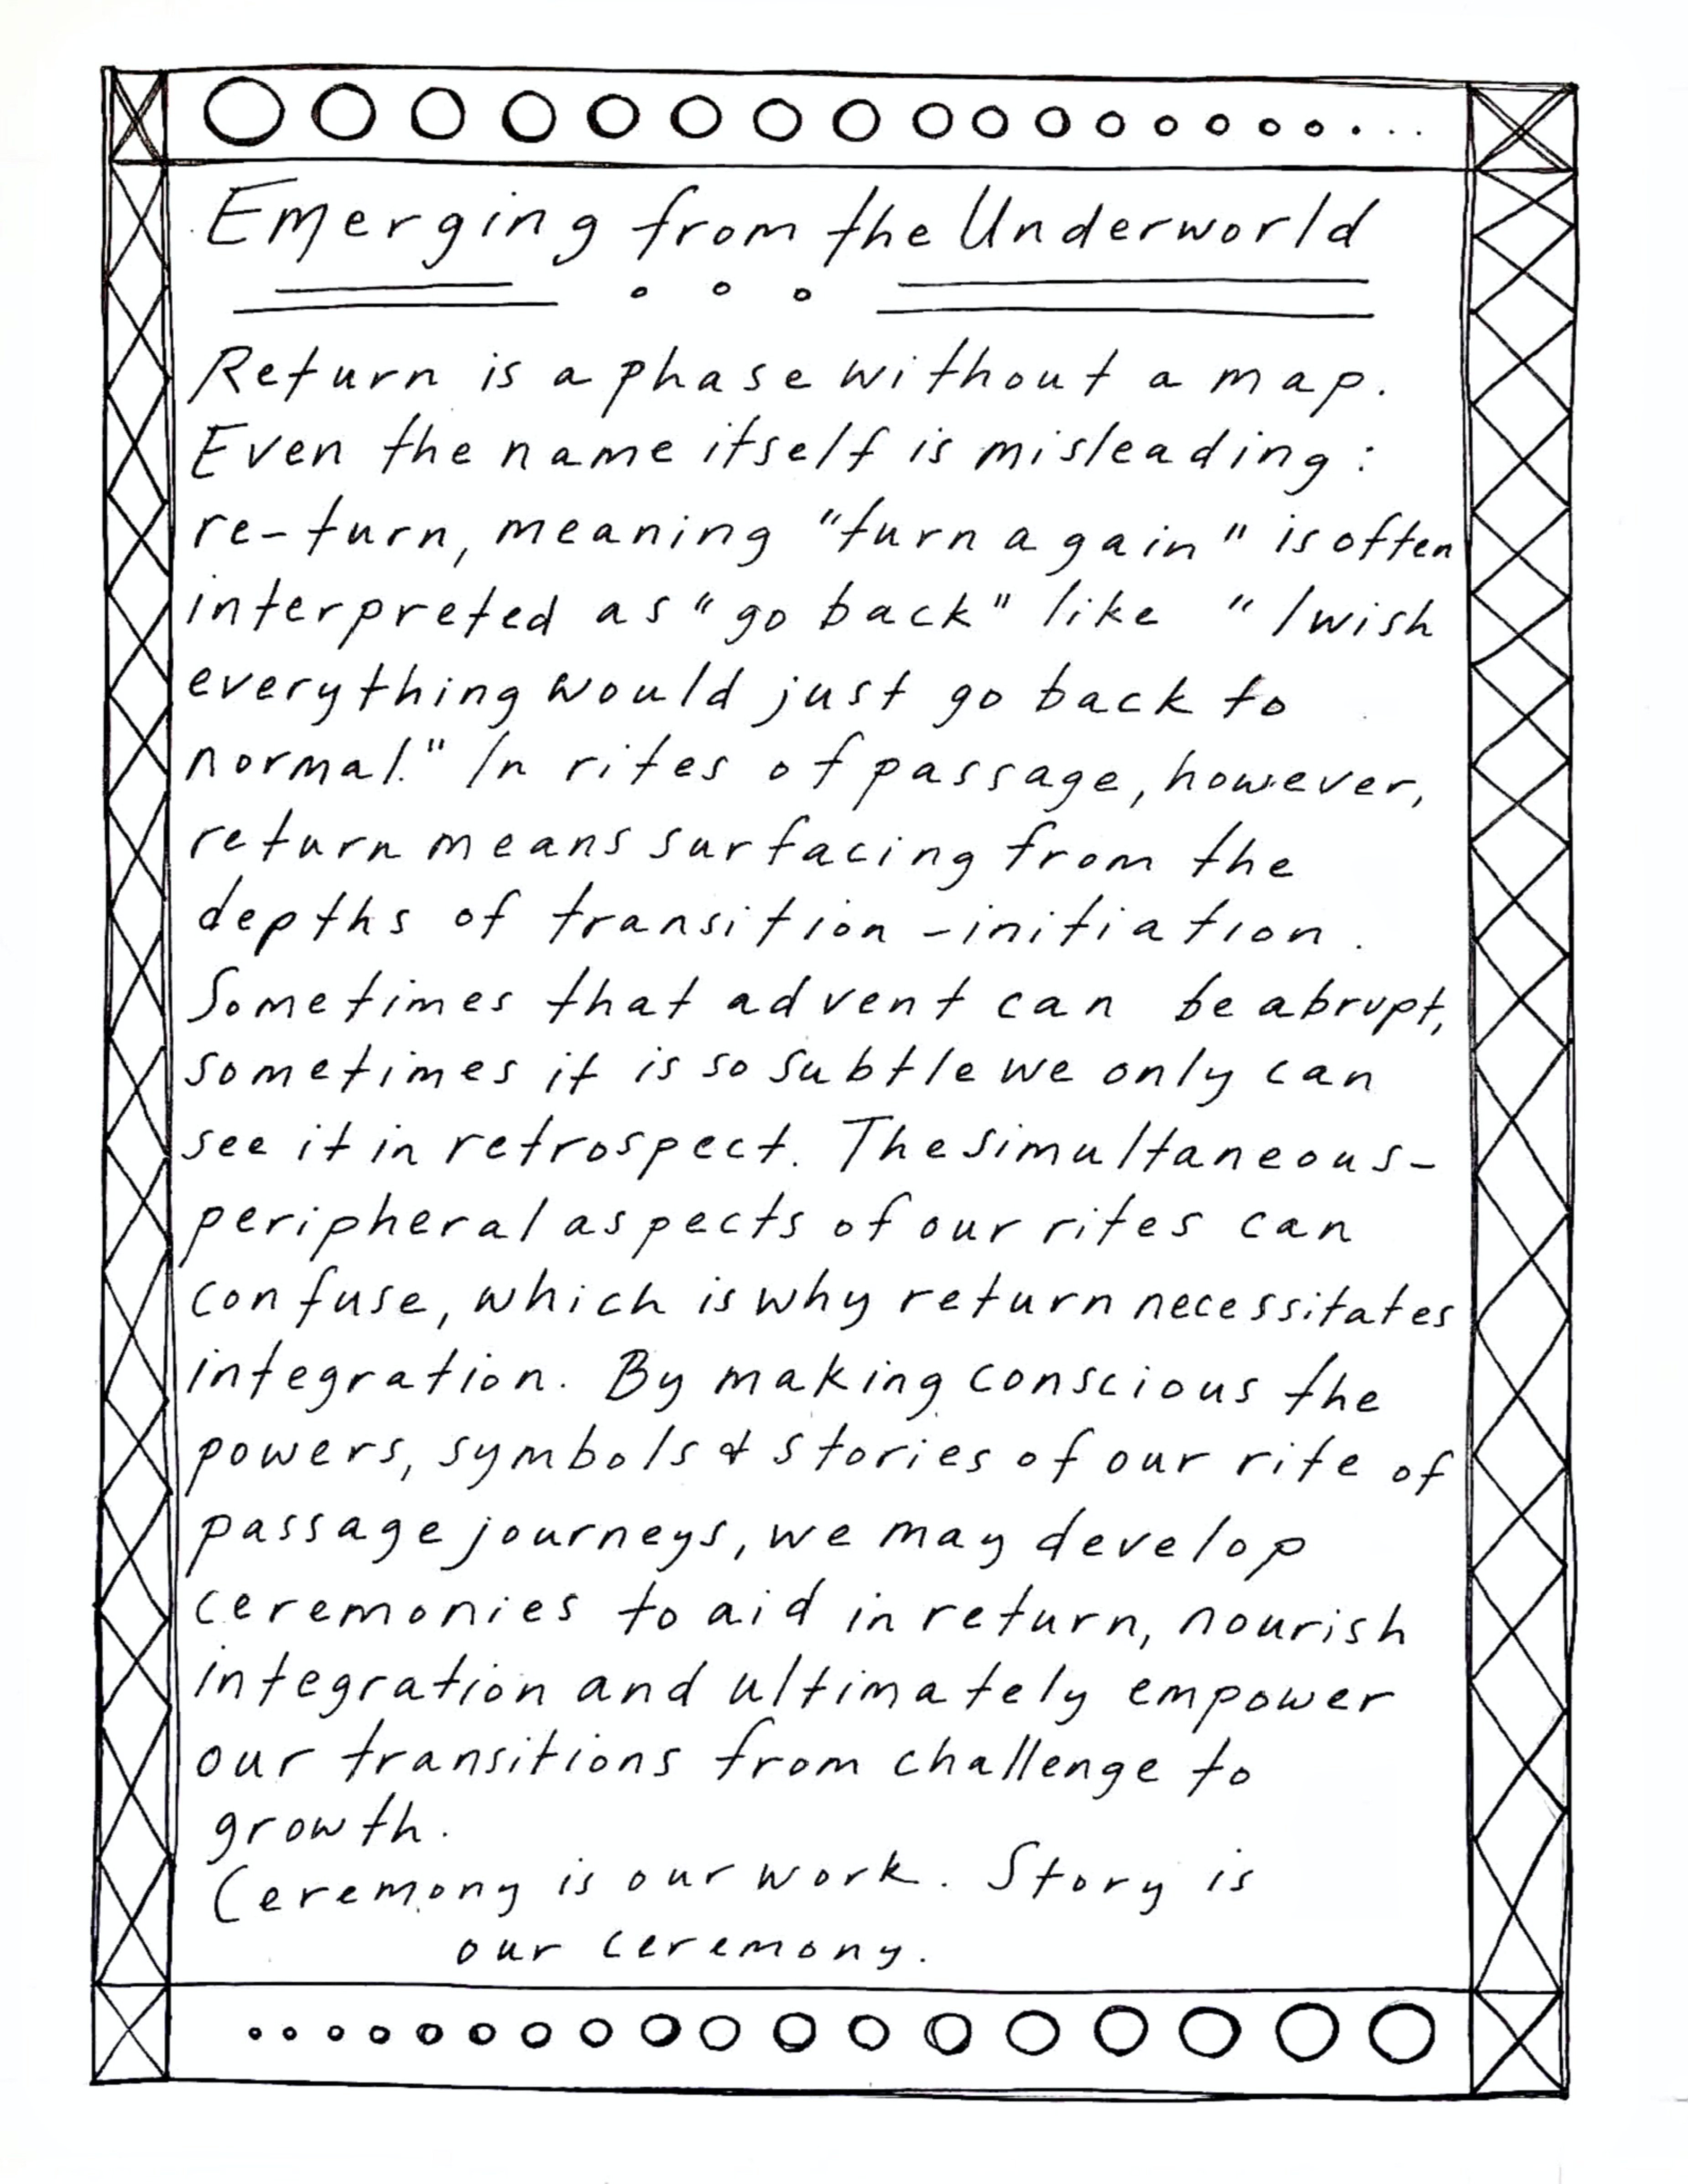 Emerging from the Underworld
Return is a phase without a map.
Even the name itself is misleading:
re-turn, meaning "turn again" is often
interpreted as "go back" like "I wish
everything would just go back to
normal." In rites of passage, however,
return means surfacing from the
depths of transition-initiation.
Sometimes that advent can be abrupt,
sometimes it is so subtle we only can
see it in retrospect. The simultaneous-
peripheral aspects of our rites can
confuse, which is why return necessitates
integration. By making conscious the
powers, symbols & stories of our rite of
passage journeys, we may develop
ceremonies to aid in return, nourish
integration and ultimately empower
our transitions from challenge to
growth.
Ceremony is our work. Story is
our ceremony.